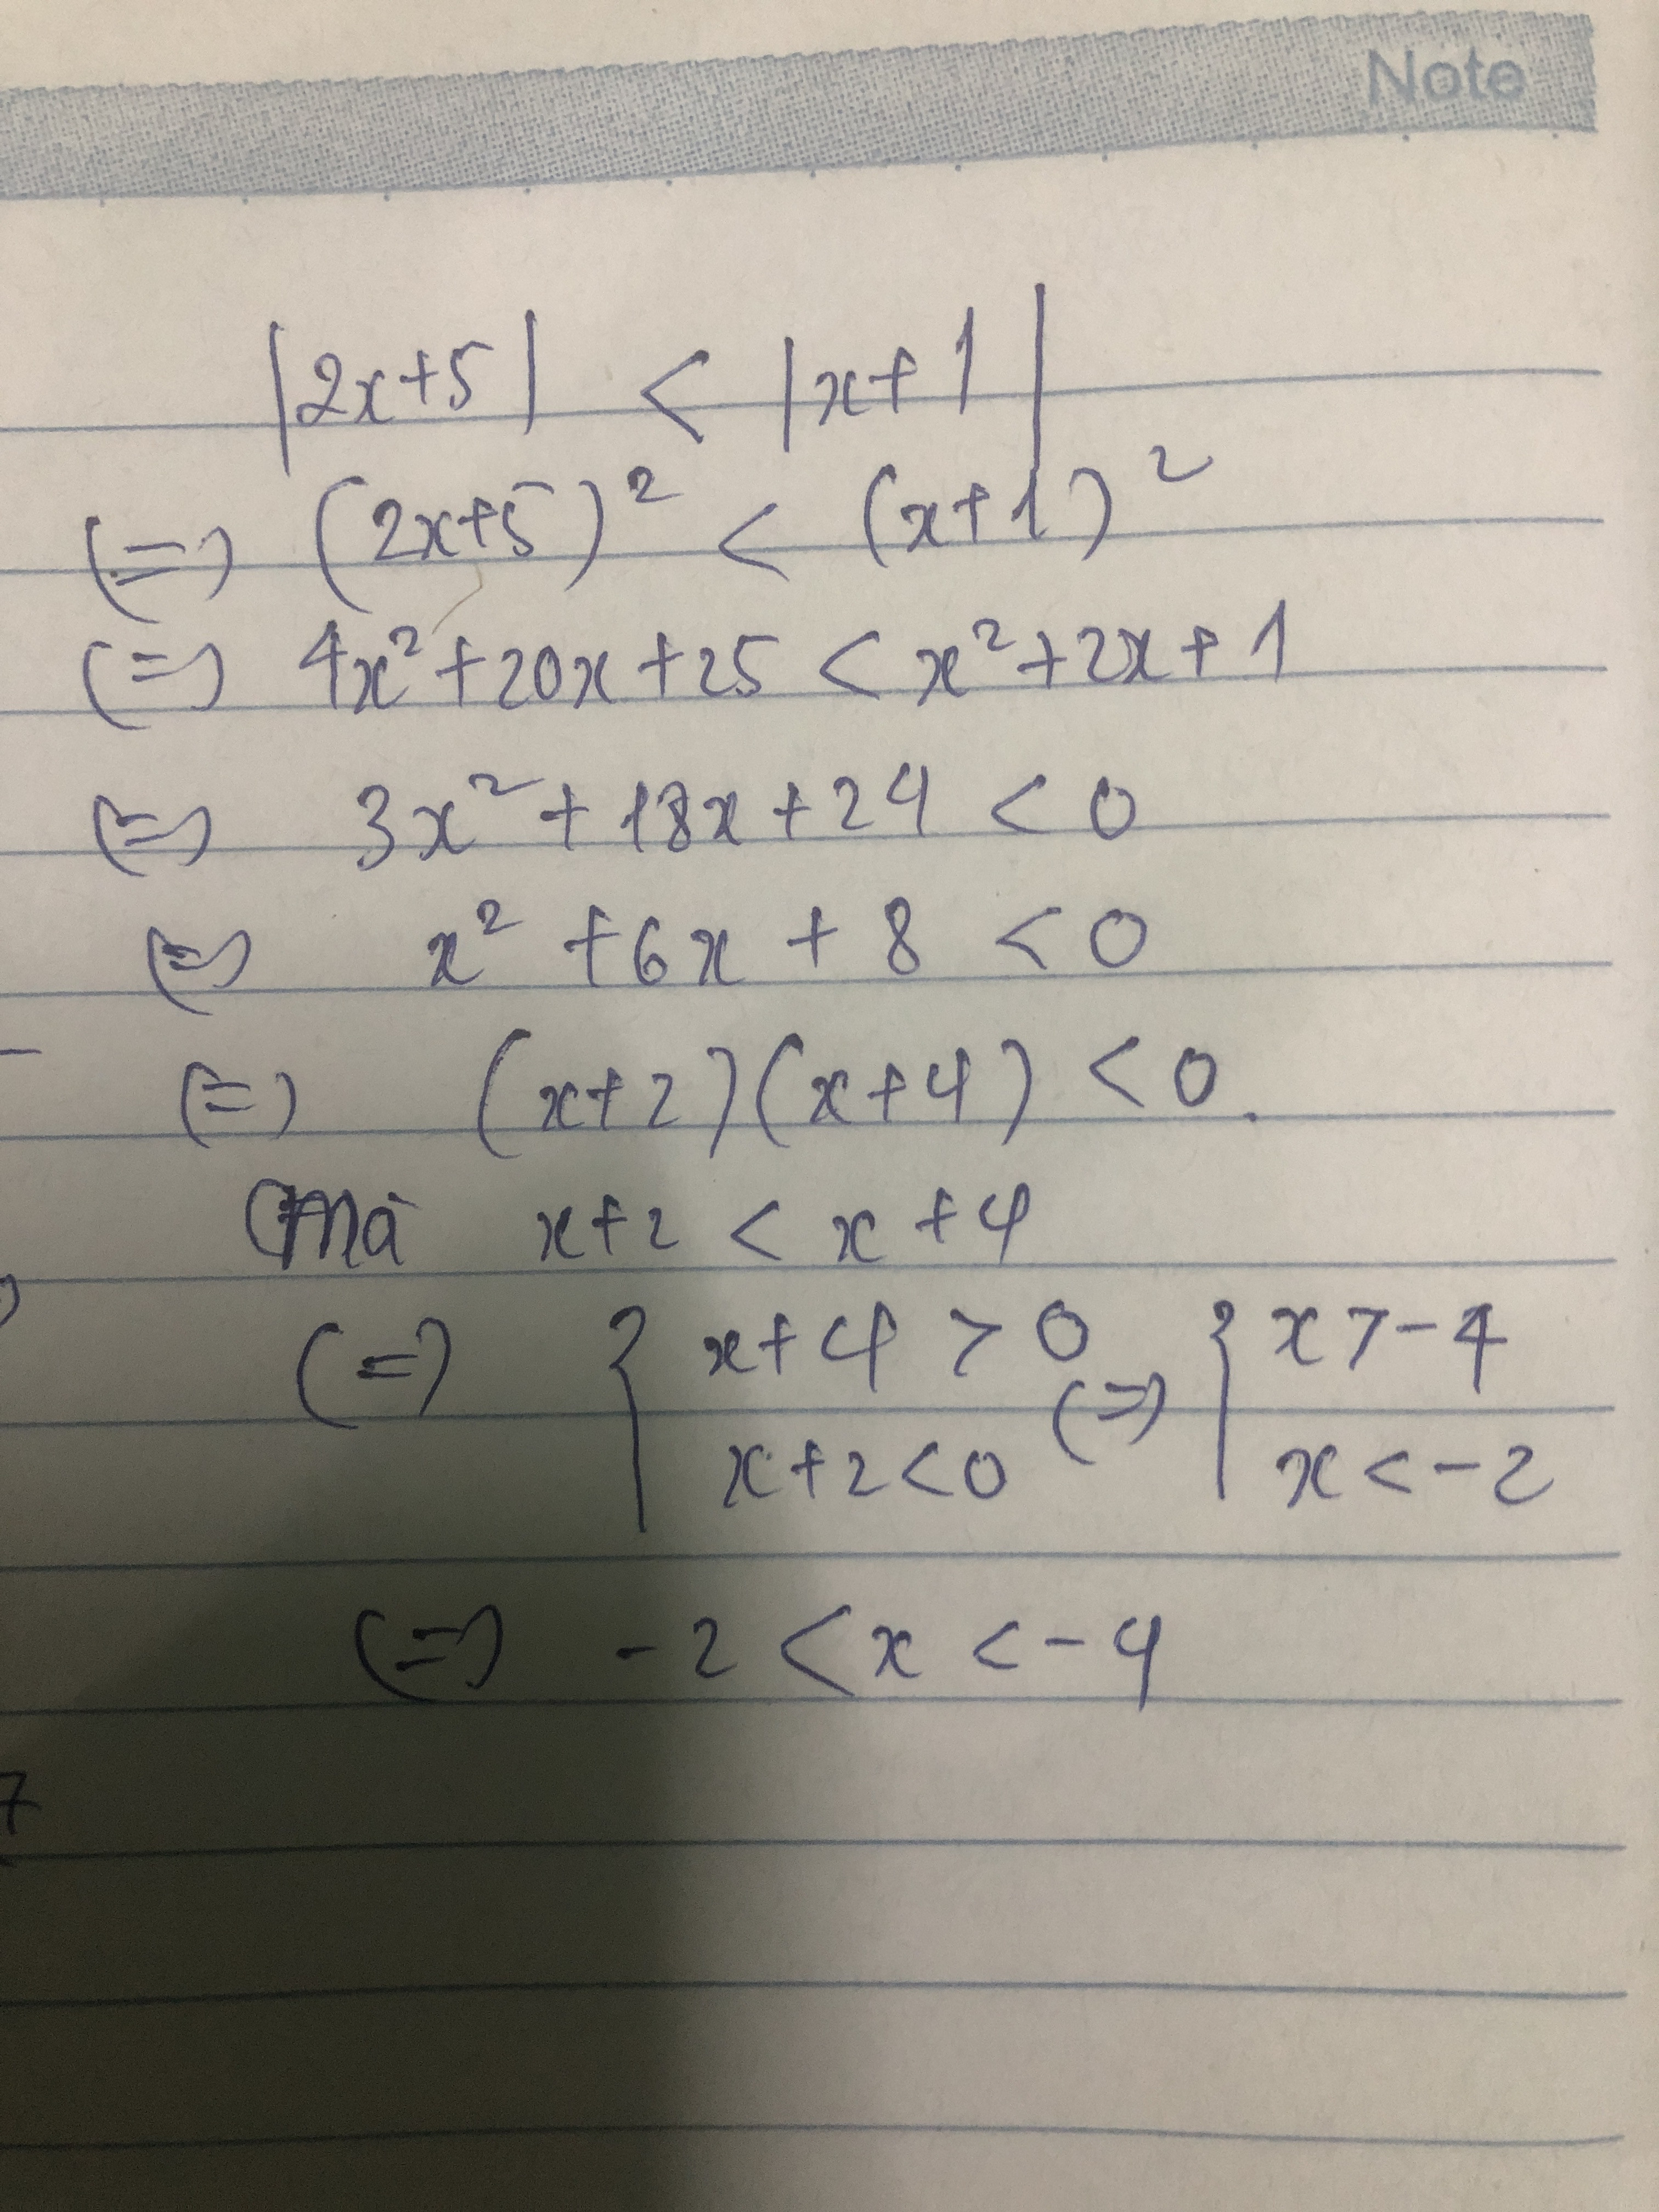 Note
|2x+5| < |x+1|
(=) (2x+5)² < (x+1)²
(=) 4x²+20x+25 < x²+2x+1
(=) 3x²+18x+24 < 0
(=) x²+6x+8 < 0
(=) (x+2)(x+4) < 0.
Mà x+2 < x+4
(=) { x+4 > 0 (=) { x > -4
x+2 < 0 x < -2
(=) -2 < x < -4
7